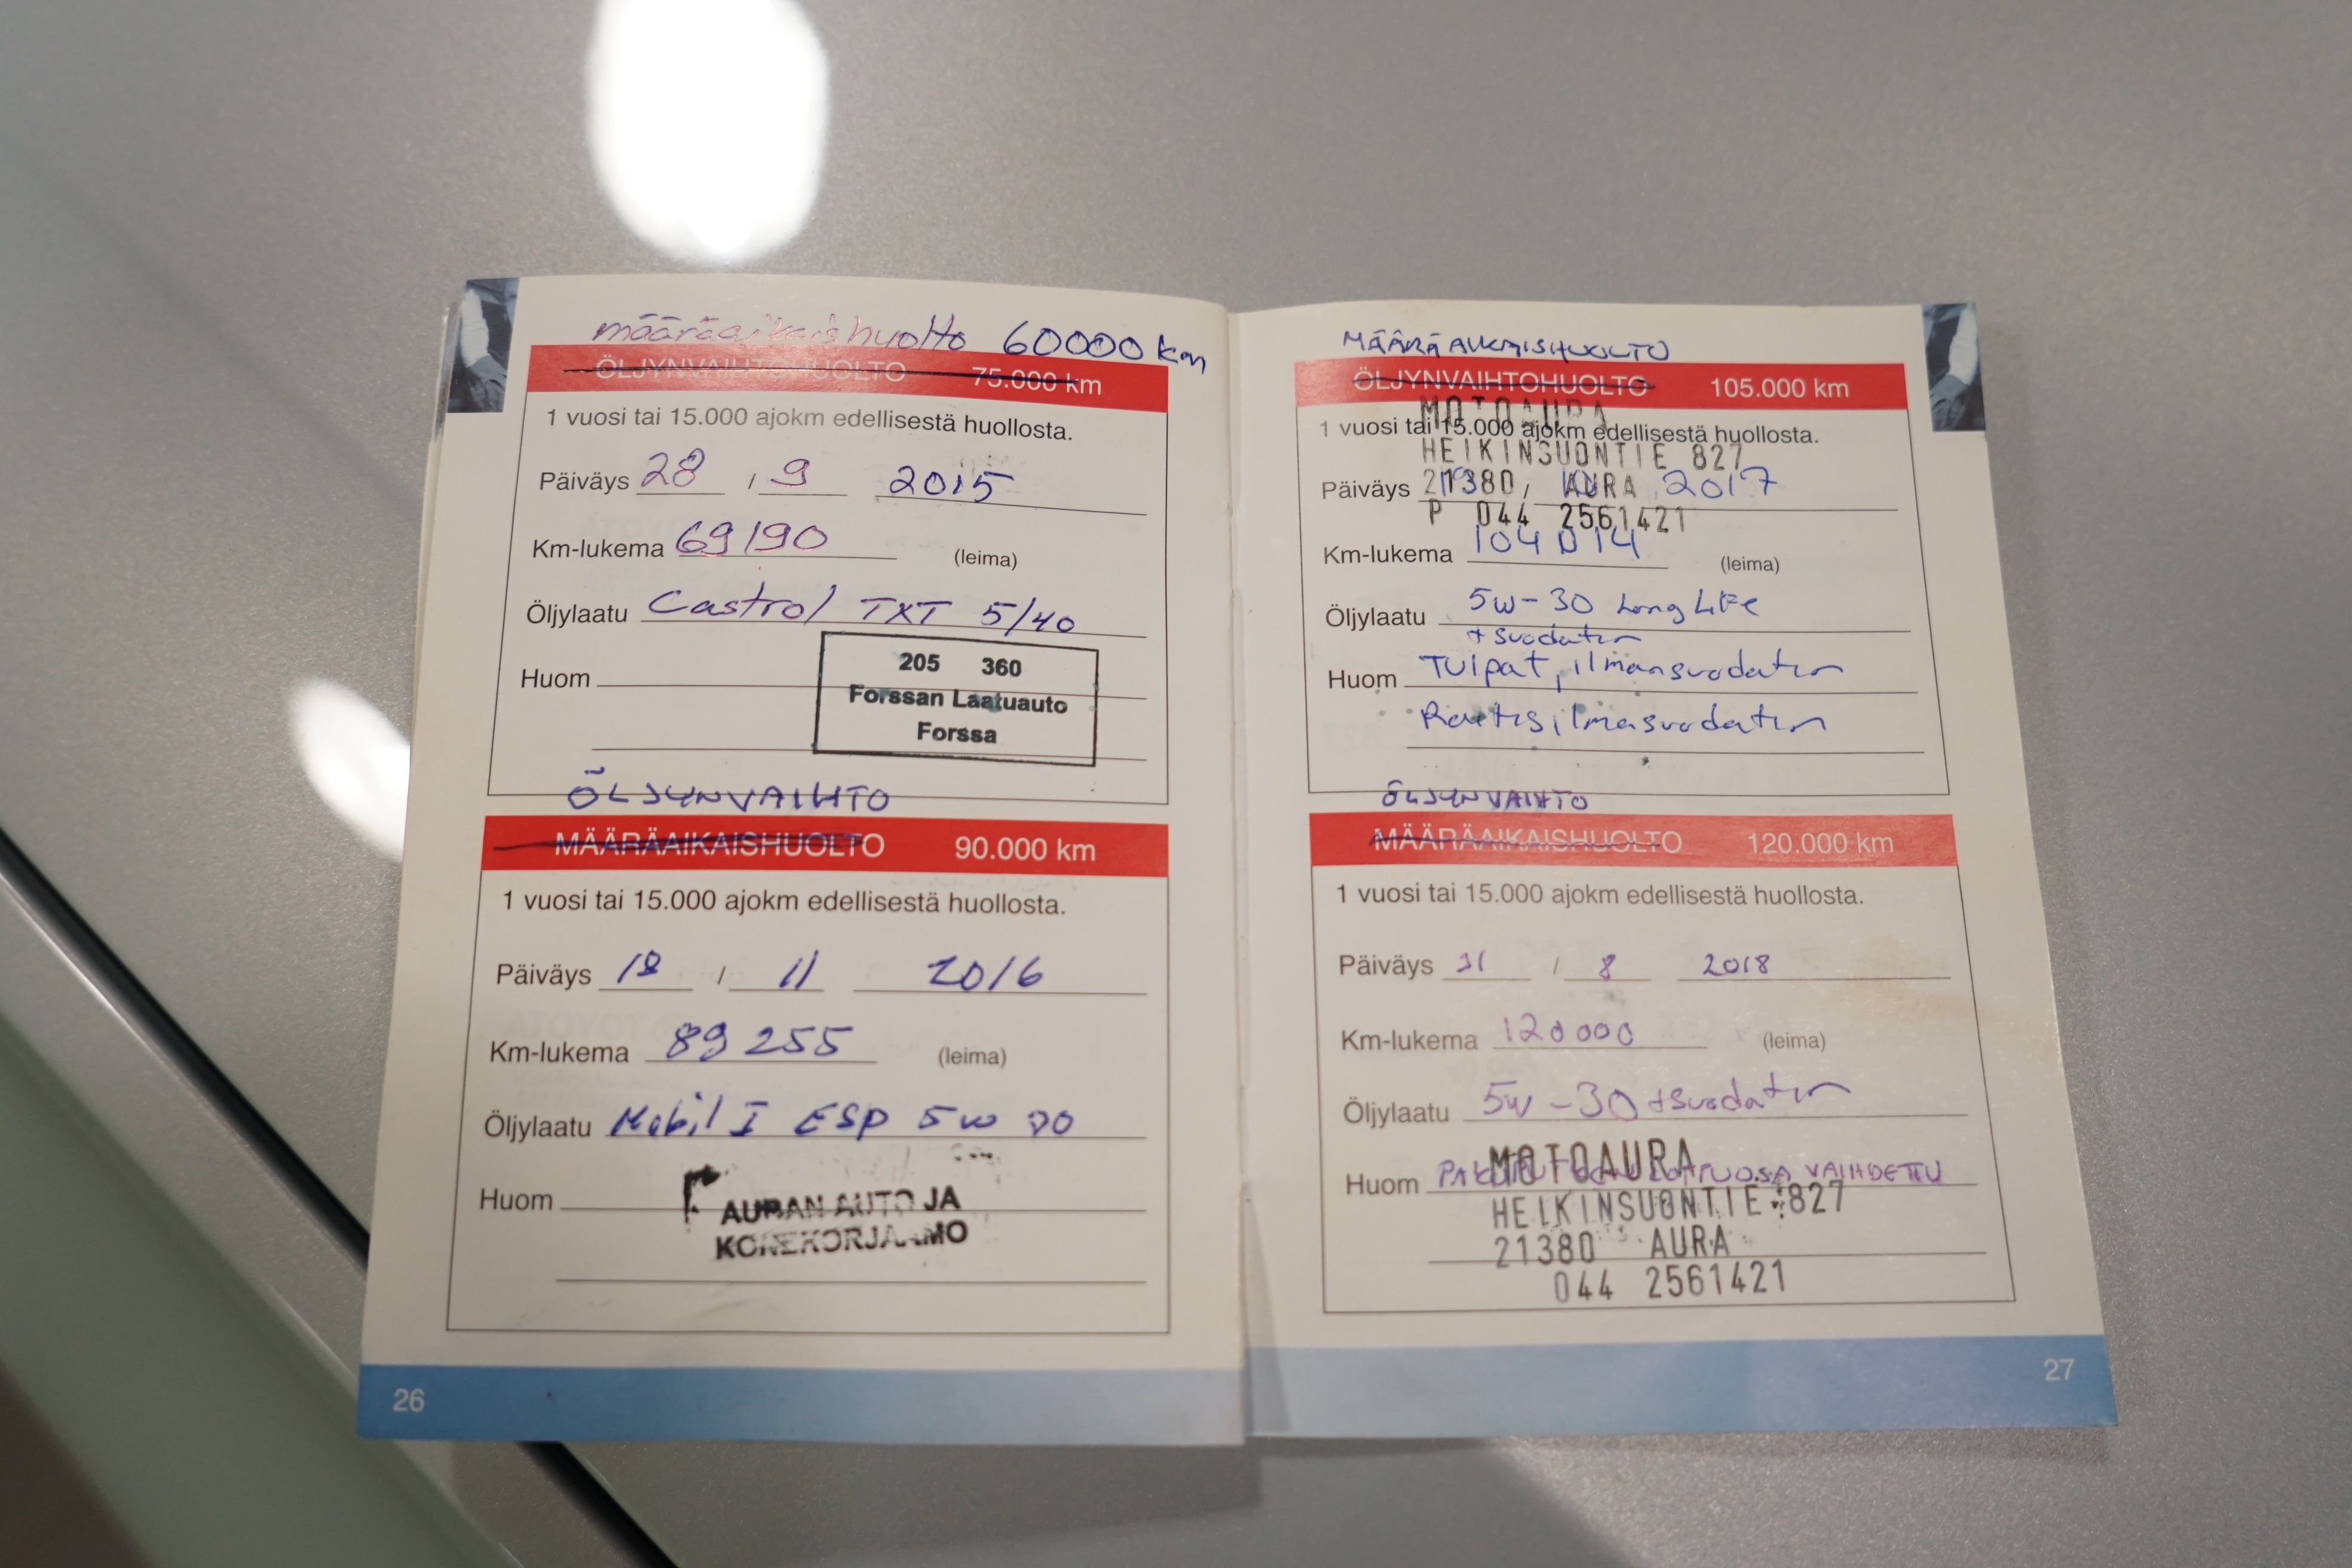 määräaikaishuolto 60000 km
ÖLJYNVAIHTOHUOLTO 75.000 km
1 vuosi tai 15.000 ajokm edellisestä huollosta.
Päiväys 28 / 9 2015
Km-lukema 69190 (leima)
Öljylaatu Castrol TXT 5/40
205 360
Huom
Forssan Laatuauto
Forssa
ÖLJYNVAIHTO
MÄÄRÄAIKAISHUOLTO 90.000 km
1 vuosi tai 15.000 ajokm edellisestä huollosta.
Päiväys 18 / 11 2016
Km-lukema 89 255 (leima)
Öljylaatu Mobil I ESP 5w 30
Huom
AURAN AUTO JA
KONEKORJAAMO
26
MÄÄRÄAIKAISHUOLTO
ÖLJYNVAIHTOHUOLTO 105.000 km
MOTOAURA
1 vuosi tai 15.000 ajokm edellisestä huollosta.
HEIKINSUONTIE 827
Päiväys / 2017
21380 AURA
P 044 2561421
Km-lukema 104 014 (leima)
Öljylaatu 5w-30 Long Life
+ suodatin
Huom Tulpat, ilmansuodatin
Raitisilmasuodatin
ÖLJYNVAIHTO
MÄÄRÄAIKAISHUOLTO 120.000 km
1 vuosi tai 15.000 ajokm edellisestä huollosta.
Päiväys 31 / 8 2018
Km-lukema 120000 (leima)
Öljylaatu 5w-30 + suodatin
MOTOAURA
Huom VAIHDETTU
HEIKINSUONTIE 827
21380 AURA
044 2561421
27